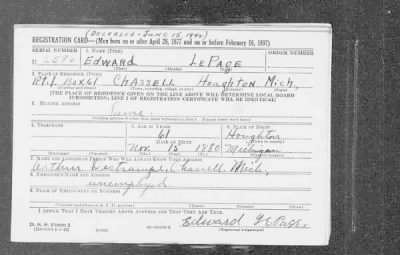 (DECEASED - JUNE 15, 1942)
REGISTRATION CARD—(Men born on or after April 28, 1877 and on or before February 16, 1897)
SERIAL NUMBER
1. NAME (Print)
ORDER NUMBER
U
EDWARD LEPAGE
2. PLACE OF RESIDENCE (Print)
Rt. 1 Box 61 CHASSELL Houghton Mich.
[THE PLACE OF RESIDENCE GIVEN ON THE LINE ABOVE WILL DETERMINE LOCAL BOARD
JURISDICTION; LINE 2 OF REGISTRATION CERTIFICATE WILL BE IDENTICAL]
3. MAILING ADDRESS
Same
4. TELEPHONE
5. AGE IN YEARS
6. PLACE OF BIRTH
61
Houghton
DATE OF BIRTH
Nov. 15 1880
Michigan
7. NAME AND ADDRESS OF PERSON WHO WILL ALWAYS KNOW YOUR ADDRESS
Chassell Mich.
8. EMPLOYER'S NAME AND ADDRESS
unemployed
9. PLACE OF EMPLOYMENT OR BUSINESS
I AFFIRM THAT I HAVE VERIFIED ABOVE ANSWERS AND THAT THEY ARE TRUE.
D. S. S. Form 1
Edward LePage